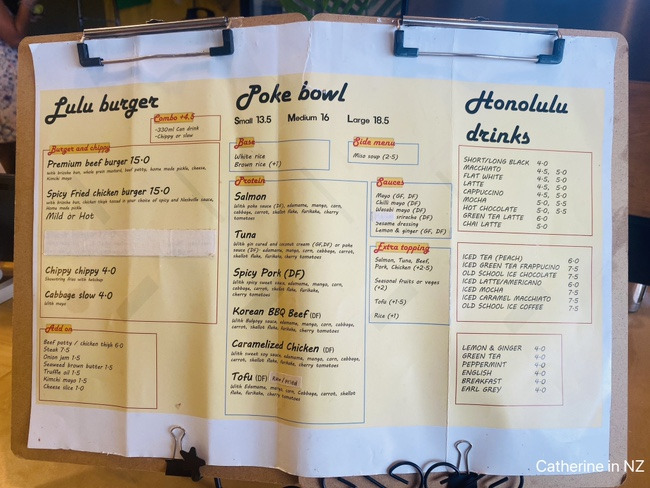 Lulu burger
Combo +4.5
-330ml Can drink
-Chippy or slaw
Burger and chippy
Premium beef burger 15-0
with brioche bun, whole grain mustard, beef patty, home made pickle, cheese,
Kimchi mayo
Spicy Fried chicken burger 15-0
with brioche bun, chicken thigh tossed in your choice of spicy and Nashville sauce,
Home made pickle
Mild or Hot
Chippy chippy 4-0
Shoestring fries with ketchup
Cabbage slow 4-0
With mayo
Add on
Beef patty / chicken thigh 6-0
Steak 7-5
Onion jam 1-5
Seaweed brown butter 1-5
Truffle oil 1-5
Kimchi mayo 1-5
Cheese slice 1-0
Poke bowl
Small 13.5 Medium 16 Large 18.5
Base
White rice
Brown rice (+1)
Side menu
Miso soup (2-5)
Protein
Salmon
With poke sauce (DF), edamame, mango, corn,
cabbage, carrot, shallot flake, furikake, cherry
tomatoes
Tuna
With gin cured and coconut cream (GF,DF) or poke
sauce (DF)- edamame, mango, corn, cabbage,
carrot, shallot flake, furikake, cherry
tomatoes
Spicy Pork (DF)
With spicy sweet sauce, edamame, mango, corn,
cabbage, carrot, shallot flake, furikake,
cherry tomatoes
Korean BBQ Beef (DF)
With Bulgogi sauce, edamame, mango, corn, cabbage,
carrot, shallot flake, furikake, cherry tomatoes
Caramelized Chicken (DF)
With sweet soy sauce, edamame, mango, corn, cabbage,
carrot, shallot flake, furikake, cherry tomatoes
Tofu (DF) Raw/Fried
With Edamame, mango, corn, Cabbage, carrot, shallot
flake, furikake, cherry tomatoes
Sauces
Mayo (GF, DF)
Chilli mayo (DF)
Wasabi mayo (DF)
sriracha (DF)
Sesame dressing
Lemon & ginger (GF, DF)
Extra topping
Salmon, Tuna, Beef,
Pork, Chicken (+2-5)
Seasonal fruits or vegies
(+2)
Tofu (+1-5)
Rice (+1)
Honolulu
drinks
SHORT/LONG BLACK 4-0
MACCHIATO 4-5, 5-0
FLAT WHITE 4-5, 5-0
LATTE 4-5, 5-0
CAPPUCCINO 4-5, 5-0
MOCHA 5-0, 5-5
HOT CHOCOLATE 5-0, 5-5
GREEN TEA LATTE 6-0
CHAI LATTE 5-0
ICED TEA (PEACH) 6-0
ICED GREEN TEA FRAPPUCINO 7-5
OLD SCHOOL ICE CHOCOLATE 7-5
ICED LATTE/AMERICANO 6-0
ICED MOCHA 7-5
ICED CARAMEL MACCHIATO 7-5
OLD SCHOOL ICE COFFEE 7-5
LEMON & GINGER 4-0
GREEN TEA 4-0
PEPPERMINT 4-0
ENGLISH 4-0
BREAKFAST 4-0
EARL GREY 4-0
Catherine in NZ